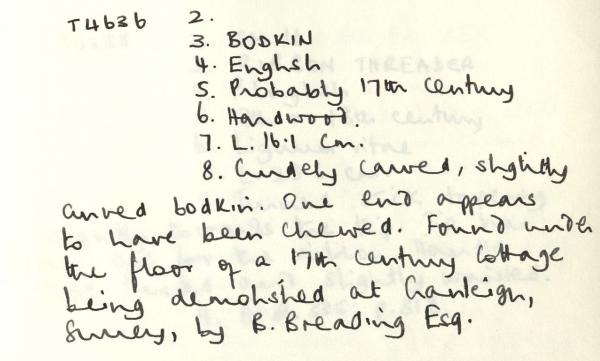 T4636 2.
3. BODKIN
4. English
5. Probably 17th century
6. Hardwood.
7. L. 16.1 cm.
8. Crudely carved, slightly
curved bodkin. One end appears
to have been chewed. Found under
the floor of a 17th century cottage
being demolished at Cranleigh,
Surrey, by B. Breading Esq.